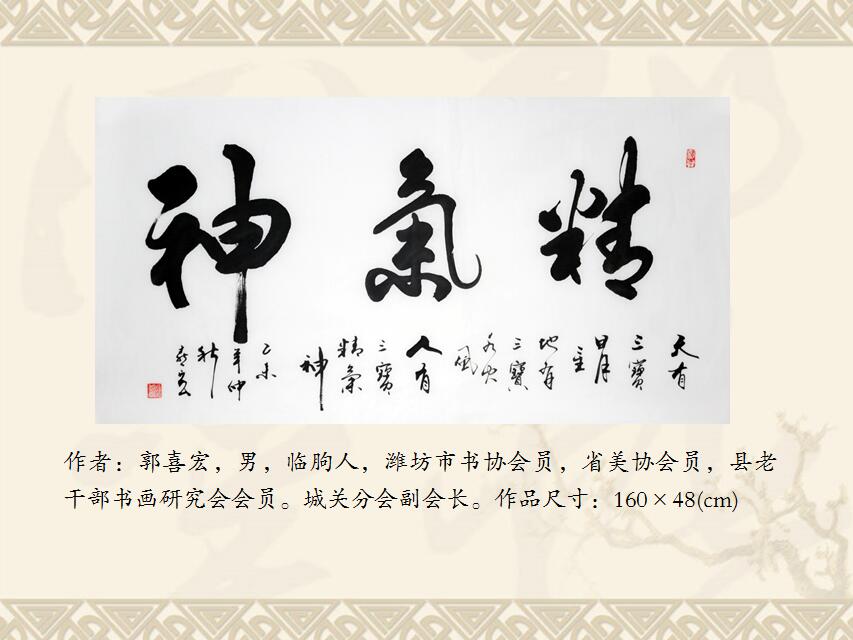 精氣神
天有
三寶
日月
星
地有
三寶
水火
風
人有
三寶
精氣
神
乙未
年仲
秋
喜宏
作者：郭喜宏，男，临朐人，潍坊市书协会员，省美协会员，县老
干部书画研究会会员。城关分会副会长。作品尺寸：160×48(cm)